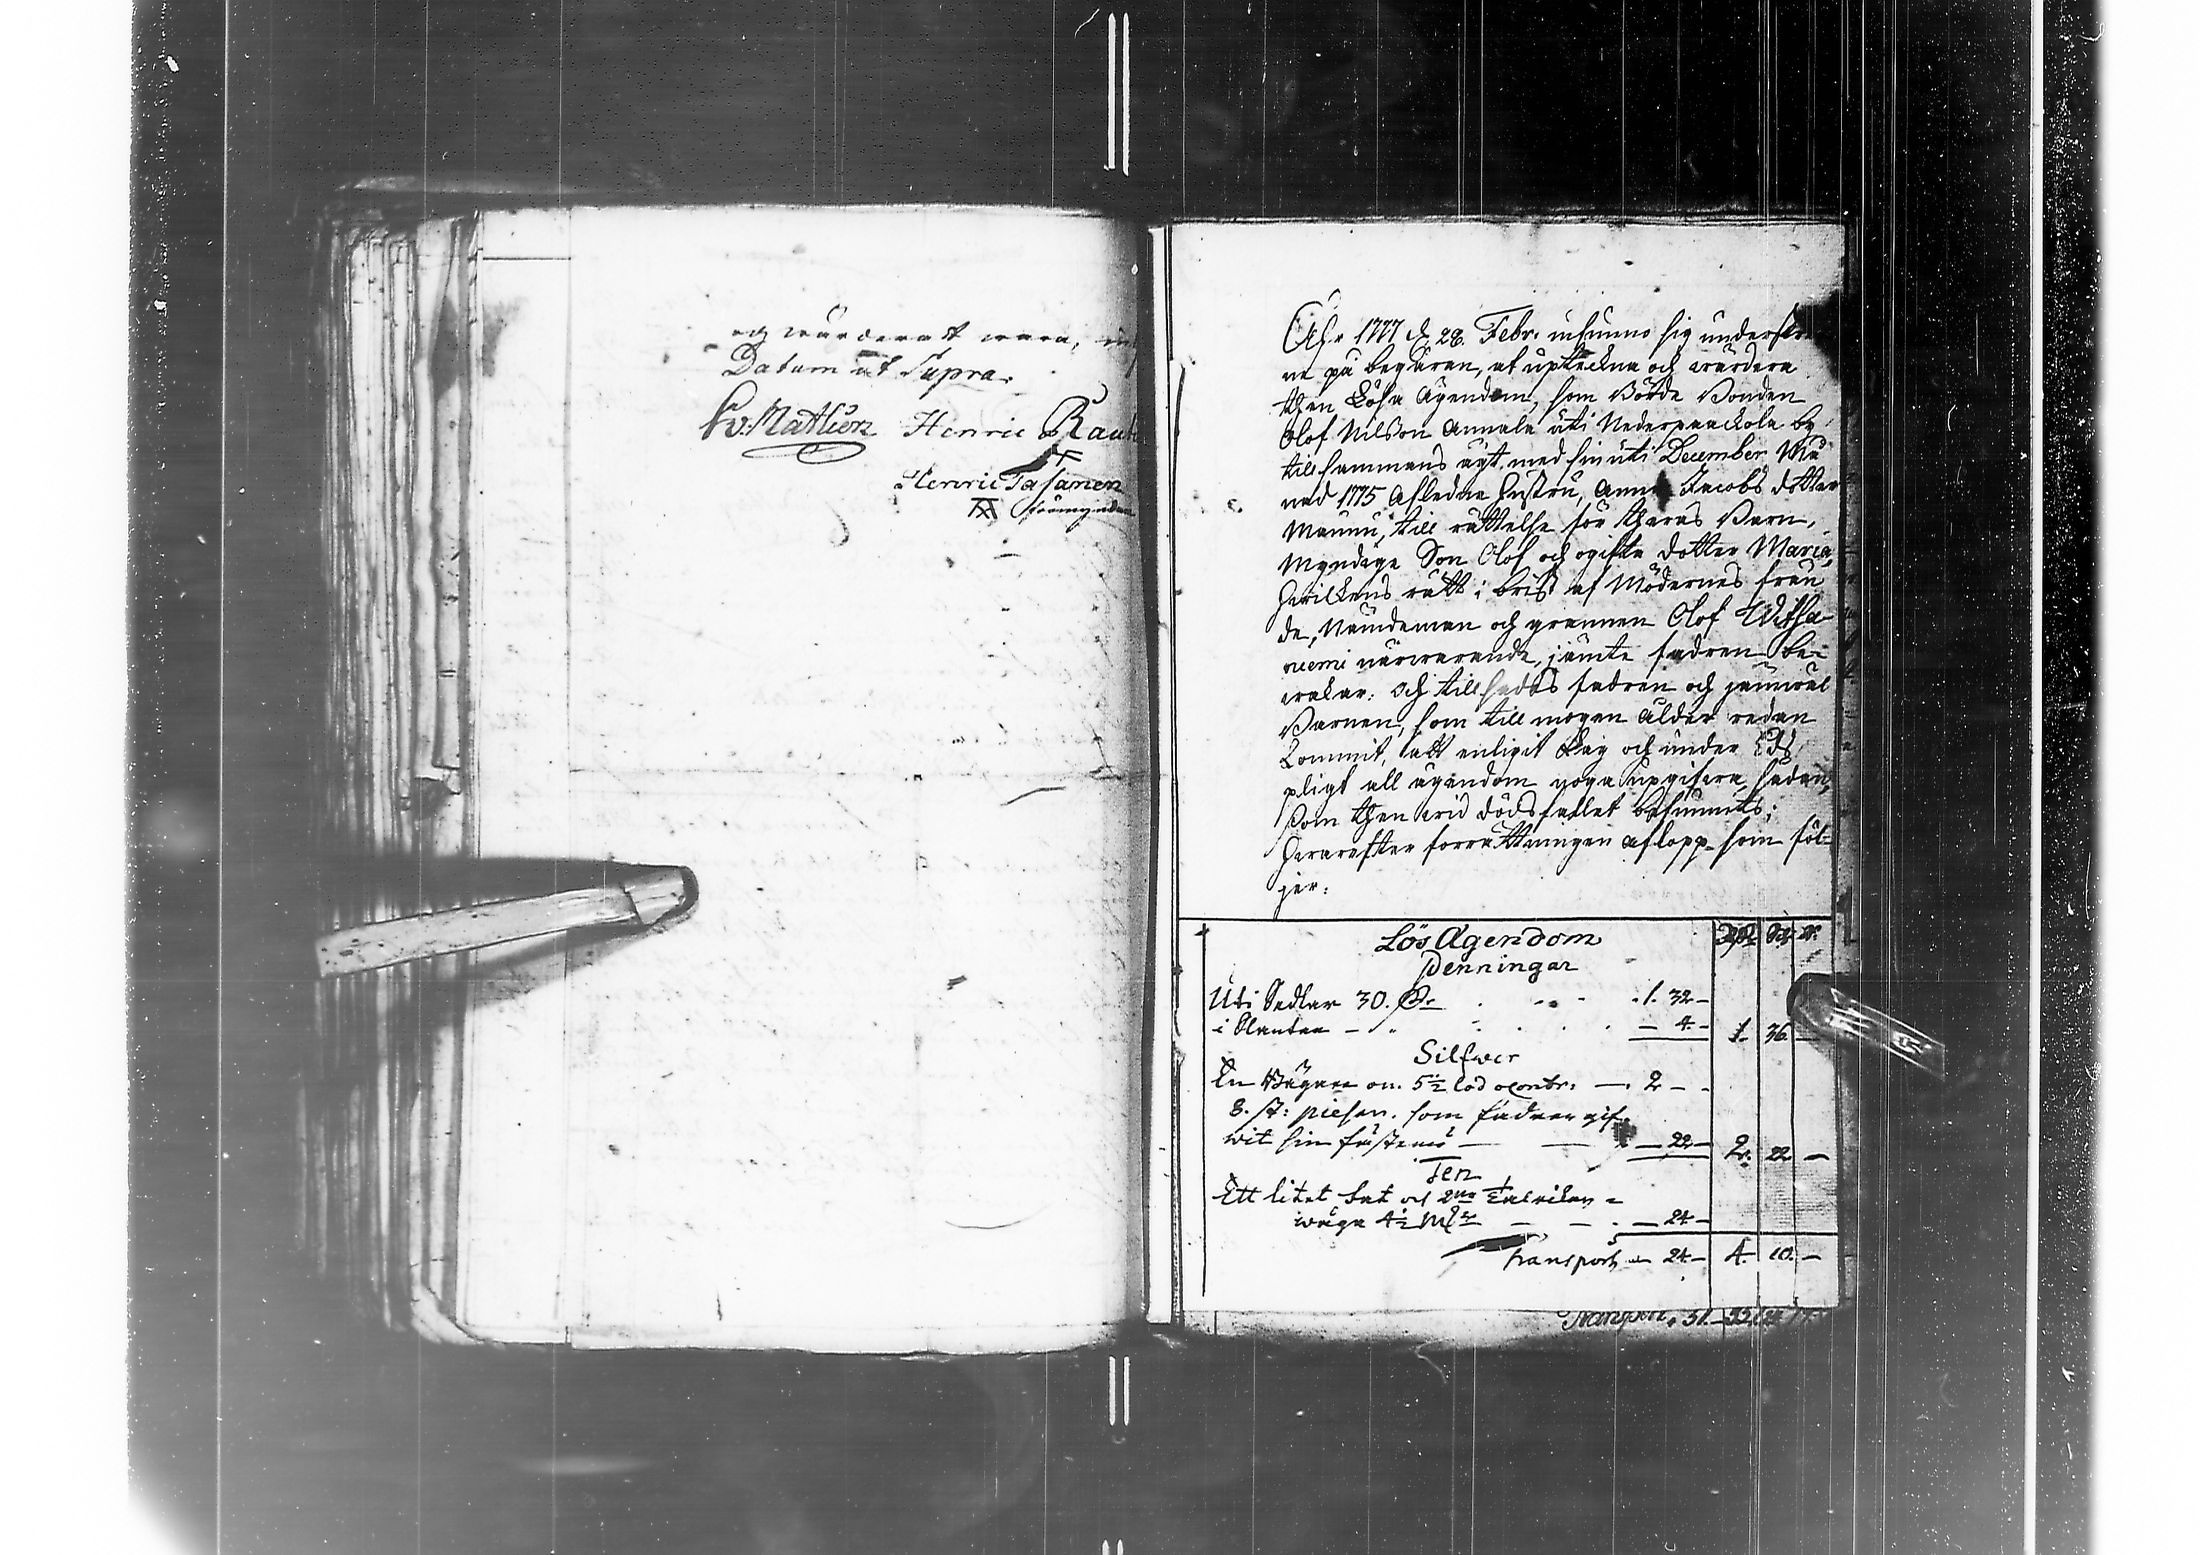 och wärderadt wara,
Datum ut Supra.
Henric Raut
Henric Pasanen
förmyndare
Åhr 1777 d. 28. Febr. infunno sig underskre
ne på begäran, at upteckna och wärdera
then Lösa Ägendom, som Börde Bonden
Olof Nilsson Annala uti Nederpaackola by
tillsammans ägt med sin uti December Må
nad 1775 Afledne Hustru, Anna Jacobs dotter
Maunu, till rättelse för theras Barn,
Myndige Son Olof och ogifta dotter Maria,
hwilkens rätt i brist af Mödernes frän
de, Nämdeman och grannen Olof
niemi närwarande, jämte fadren be-
wakar: och tillsades fadren och jämwäl
Barnen, som till mogen ålder redan
Kommit, att enligit Lag och under Eds
pligt all ägendom noga upgifwa, sådan,
som then wid dödsfallet befunnits;
hwarefter förrättningen aflopp som föl-
jer:
Lös Ägendom
Penningar
Uti Sedlar 30. Dr . - - - . 1. 32 -
i Slantar - - . . . . - 4. - 1. 36. -
Silfwer
En Bägare om 5½ lod - . 2 - .
3. st: pieser. som fadren gif
wit sin fästemö - - - 22 - 2. 22 -
Ten
Ett litet fat och 2ne Talrikar -
wäga 4½ - - . - 24 -
Transport - 24. - 4. 10. -
Transport. 51.